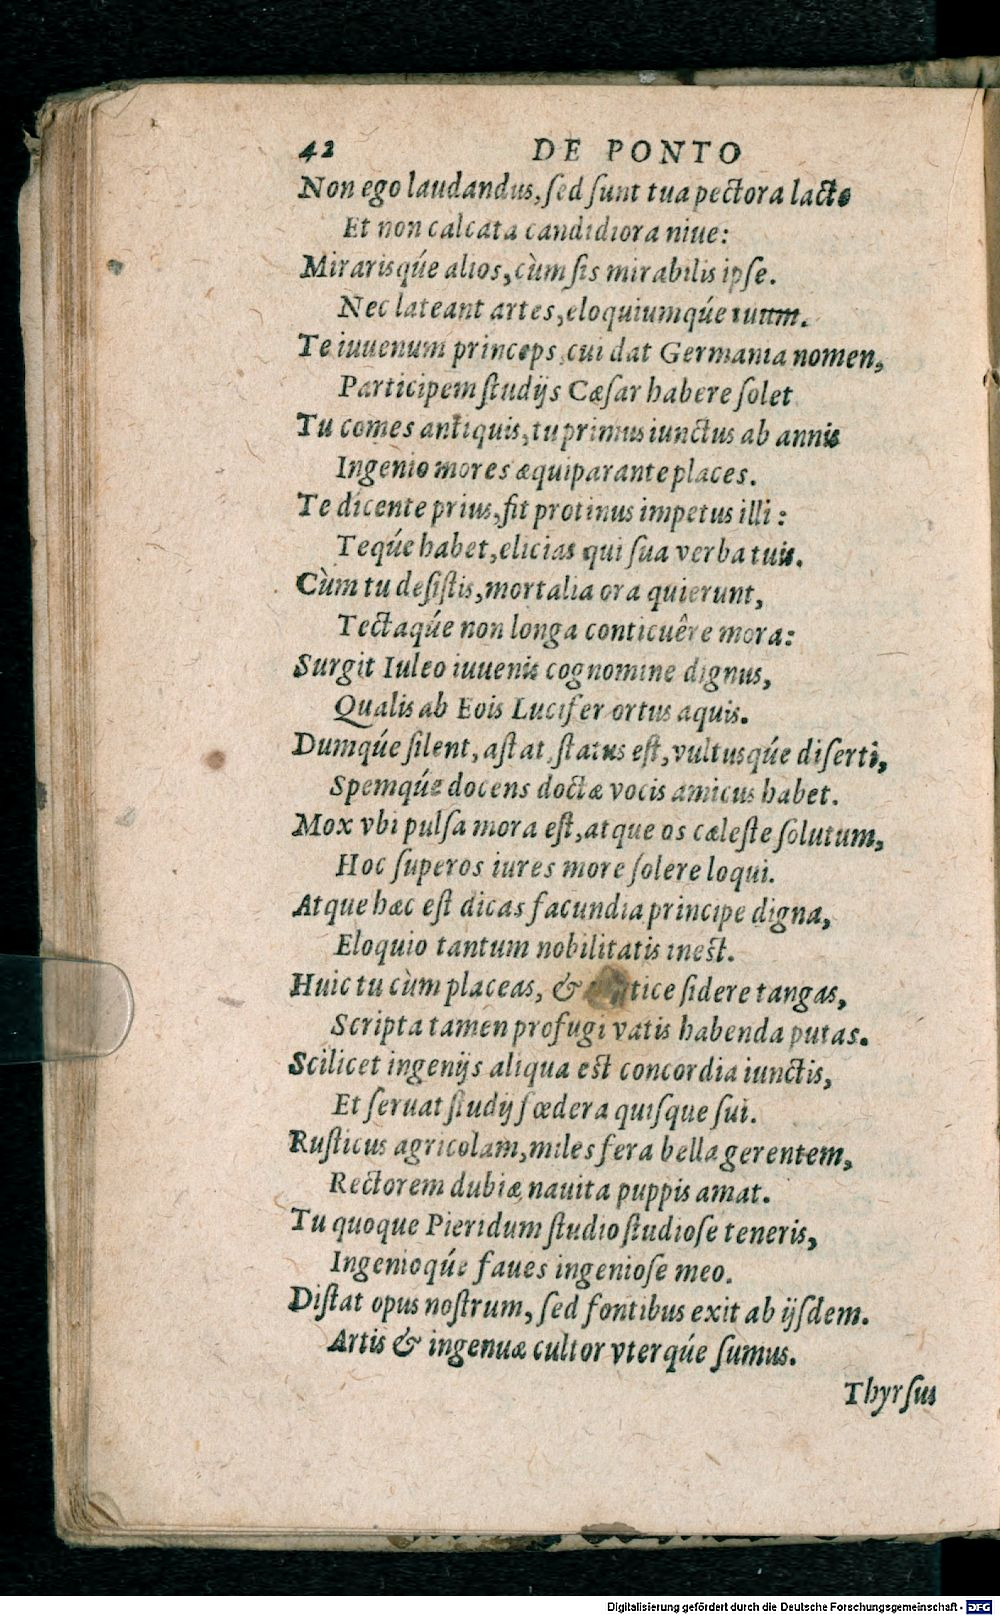 42 DE PONTO
Non ego laudandus, ſed ſunt tua pectora lacte
Et non calcata candidiora niue:
Mirarisq́ue alios, cùm ſis mirabilis ipſe.
Nec lateant artes, eloquiumq́ue tuum.
Te iuuenum princeps, cui dat Germania nomen,
Participem ſtudijs Cæſar habere ſolet
Tu comes antiquis, tu primus iunctus ab annis
Ingenio mores æquiparante places.
Te dicente prius, fit protinus impetus illi:
Teq́ue habet, elicias qui ſua verba tuis.
Cùm tu deſiſtis, mortalia ora quierunt,
Tectaq́ue non longa conticuêre mora:
Surgit Iuleo iuuenis cognomine dignus,
Qualis ab Eois Lucifer ortus aquis.
Dumq́ue ſilent, aſtat, ſtatus eſt, vultusq́ue diſerti,
Spemq́ue docens doctæ vocis amicus habet.
Mox vbi pulſa mora eſt, atque os cæleſte ſolutum,
Hoc ſuperos iures more ſolere loqui.
Atque hæc eſt dicas facundia principe digna,
Eloquio tantum nobilitatis inest.
Huic tu cùm placeas, & tice ſidere tangas,
Scripta tamen profugi vatis habenda putas.
Scilicet ingenijs aliqua est concordia iunctis,
Et ſeruat ſtudij fœdera quiſque ſui.
Ruſticus agricolam, miles fera bella gerentem,
Rectorem dubiæ nauita puppis amat.
Tu quoque Pieridum ſtudio ſtudioſe teneris,
Ingenioq́ue faues ingenioſe meo.
Diſtat opus noſtrum, ſed fontibus exit ab ijſdem.
Artis & ingenuæ cultor vterq́ue ſumus.
Thyrſus
Digitalisierung gefördert durch die Deutsche Forschungsgemeinschaft - DFG